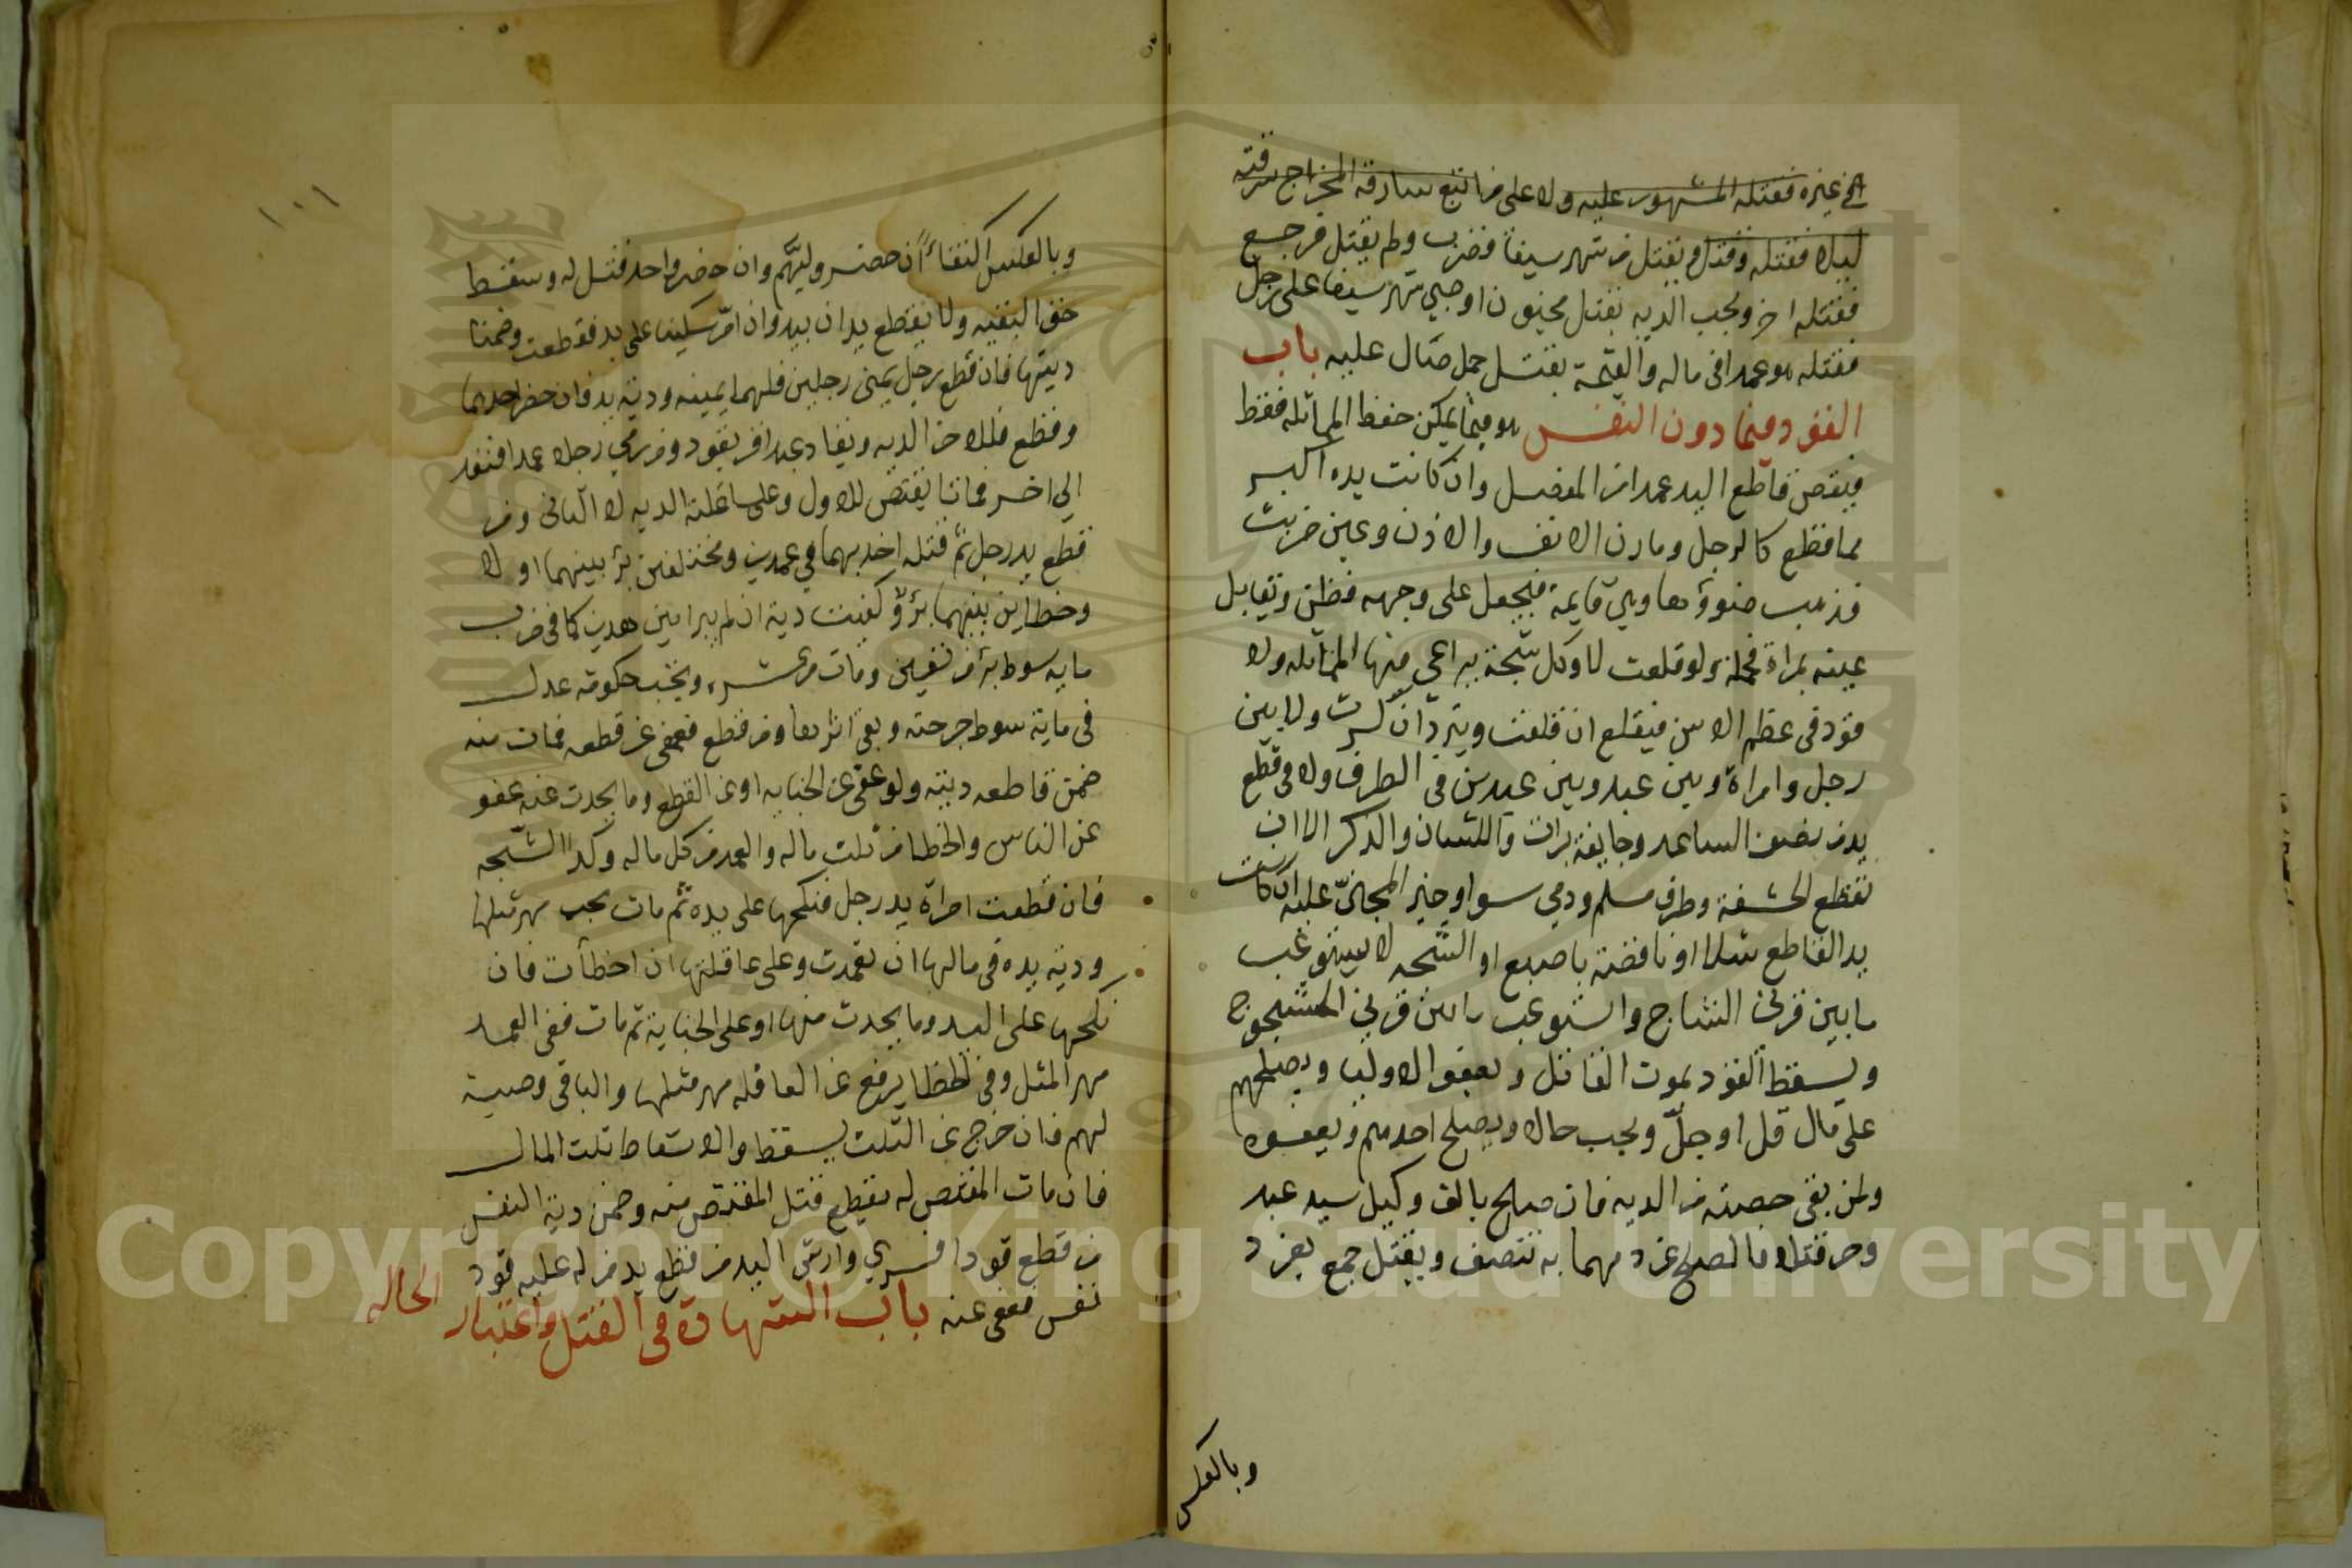 في غيره فقتله المشهور عليه ولا على من اتبع سارقه المخراج سرقته
ليلا فقتله وقتل ويقتل من شهر سيفا فضرب ولم يقتل فرجع
فقتله اخر ويجب الديه بقتل مجنون او صبي شهر سيفا على رجل
فقتله هو عمدا في ماله والقيمة بقتل جمل صال عليه باب
القود فيما دون النفس هو فيما يمكن حفظ المماثله فقط
فيقص قاطع اليد عمدا من المفصل وان كانت يده اكبر
مما قطع كالرجل ومارن الانف والاذن وعين ضربت
فذهب ضوؤها وهي قايمة فيجعل على وجهه قطن وتقابل
عينه بمراة محماة ولو قلعت لا وكل شجة يراعي فيها المماثله ولا
قود في عظم الا سن فيقلع ان قلعت ويبرد ان كسرت ولا بين
رجل وامراة وبين عبد وبين عبدين في الطرف ولا في قطع
يد من نصف الساعد وجايفة برات واللسان والذكر الا ان
تقطع الحشفة وطرف مسلم وذمي سوا وخير المجنيّ عليه ان كانت
يد القاطع شلا او ناقصة باصبع او الشجه لا يستوعب
ما بين قرني الشاج واستوعب ما بين قرني المشجوج
ويسقط القود بموت القاتل وبعفو الاوليا وبصلحهم
على مال قل او جلّ ويجب حالا وبصلح احدهم وبعفوه
ولمن بقى حصته من الديه فان صالح بالف وكيل سيد عبد
وحر قتلا فالصلح عن دمهما به تنصف ويقتل جمع بفرد
وبالعكس
١٠١
وبالعكس اكتفاءً ان حضر وليهم وان حضر واحد قتل له وسقط
حق البقيه ولا يقطع يدان بيد وان امرّ سكينا على يد فقطعت وضمنا
ديتها فان قطع رجل يمنى رجلين فلهما يمينه ودية يد وان حضر احدهما
وقطع فللاخر الديه ويقاد عبد اقر بقود ومن رمي رجلا عمدا فنفد
الى اخر فماتا يقتص للاول وعلى عاقلته الديه لا الثانى ومن
قطع يد رجل ثم قتله اخد بهما في عمدين ومختلفين برئ بينهما او لا
وخطاين بينهما برؤ وكفت دية ان لم يبرا بين هدين كما في ضرب
مايه سوط برئ من تسعين ومات من عشره ويجب حكومة عدل
في ماية سوط جرحته وبقى اثرها ومن قطع فعفى عن قطعه فمات منه
ضمن قاطعه ديته ولو عفى عن الجنايه او عن القطع وما يحدث عنه عفو
عن الناس والخطا من ثلث ماله والعمد من كل ماله وكدا الشجه
فان قطعت امراة يد رجل فنكحها على يده ثم مات يجب مهر مثلها
ودية يده في مالها ان تعمدت وعلى عاقلتها ان اخطأت فان
نكحها على اليد وما يحدث منها او على الجناية ثم مات ففى العمد
مهر المثل وفي الخطا يرفع عن العاقله مهر مثلها والباقى وصية
لهم فان خرج عن الثلث يسقط والا سقط ثلث المال
فان مات المقتص له بقطع قتل المقتص منه وضمن دية النفس
من قطع قودا فسري وارش اليد من قطع يد من له عليه قود
نفس فعفى عنه باب الشهادة في القتل واعتبار الحاله